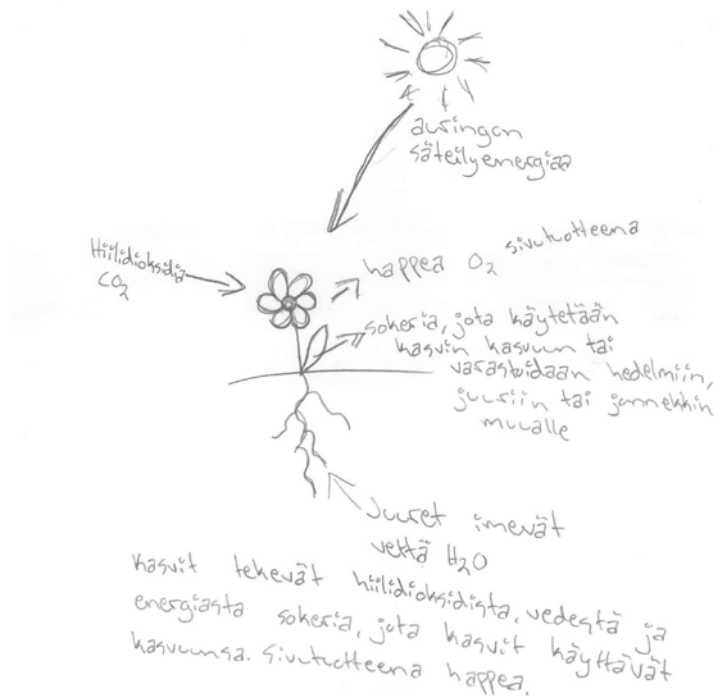 auringon
säteilyenergiaa
Hiilidioksidia
CO₂
happea O₂ sivutuotteena
sokeria, jota käytetään
kasvin kasvuun tai
varastoidaan hedelmiin,
juuriin tai jonnekkin
muualle
Juuret imevät
vettä H₂O
Kasvit tekevät hiilidioksidista, vedestä ja
energiasta sokeria, jota kasvit käyttävät
kasvuunsa. Sivutuotteena happea.